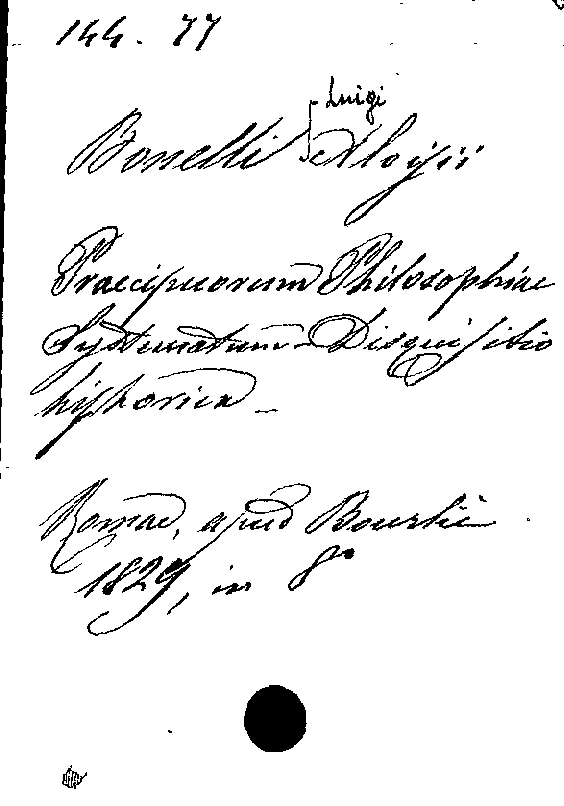 144. 77
Luigi
Bonelli Aloysii
Praecipuorum Philosophiae
Systematum Disquisitio
historica
Romae, apud Bourlié
1829, in 8º